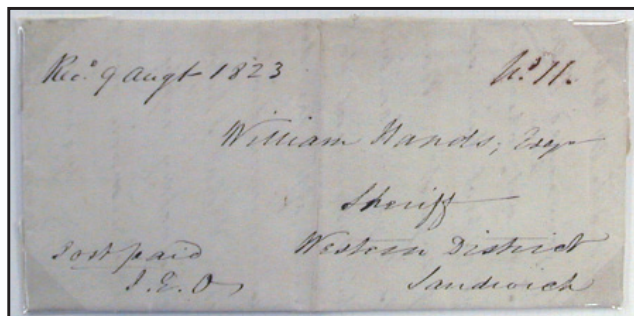 Recd 9 Augt 1823
No 11.
William Hands, Esqr
Sheriff
Western District
Sandwich
Post paid